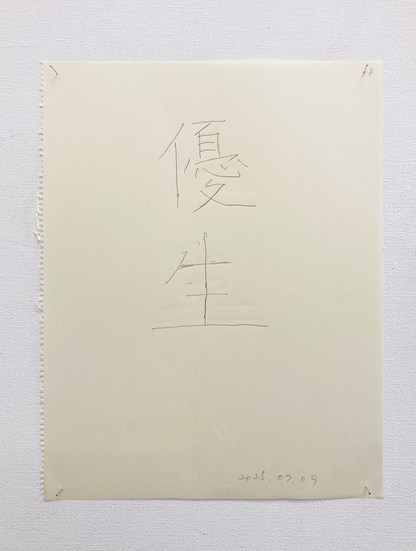 優
生
2025.09.09